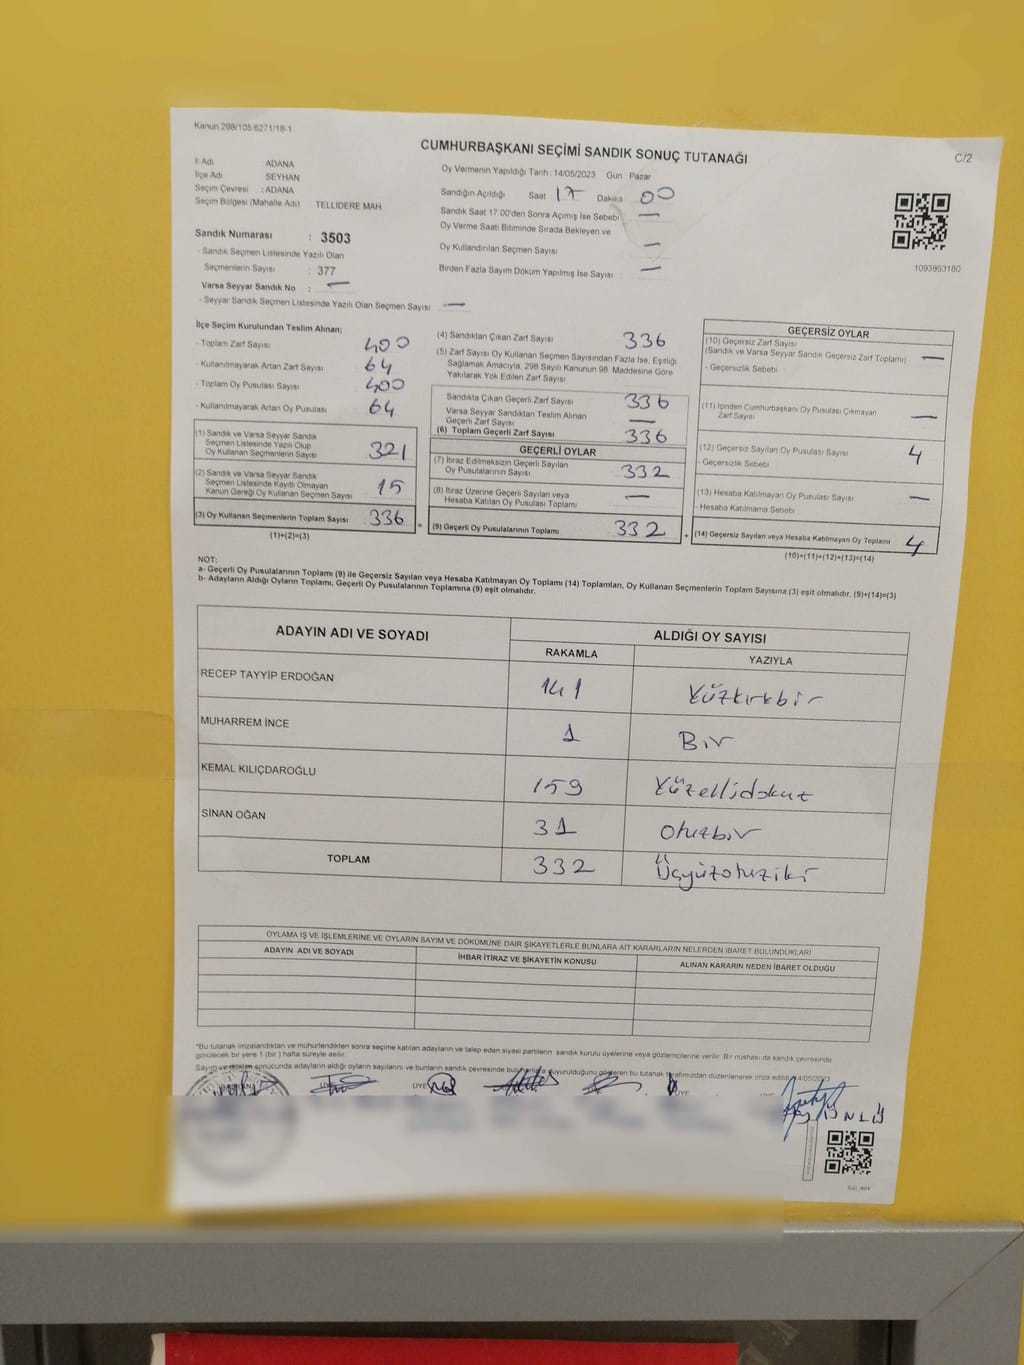 Kanun 298/105.6271/18-1
CUMHURBAŞKANI SEÇİMİ SANDIK SONUÇ TUTANAĞI
C/2
İl Adı ADANA
İlçe Adı SEYHAN
Seçim Çevresi : ADANA
Seçim Bölgesi (Mahalle Adı) : TELLİDERE MAH.
Oy Vermenin Yapıldığı Tarih :14/05/2023 Gün Pazar
Sandığın Açıldığı Saat 17 Dakika 00
Sandık Saat 17:00'den Sonra Açımış İse Sebebi —
Oy Verme Saati Bitiminde Sırada Bekleyen ve
Oy Kullandırılan Seçmen Sayısı —
Birden Fazla Sayım Döküm Yapılmış İse Sayısı —
1093863180
Sandık Numarası : 3503
- Sandık Seçmen Listesinde Yazılı Olan
Seçmenlerin Sayısı : 377
Varsa Seyyar Sandık No : —
- Seyyar Sandık Seçmen Listesinde Yazılı Olan Seçmen Sayısı —
İlçe Seçim Kurulundan Teslim Alınan;
- Toplam Zarf Sayısı 400
- Kullanılmayarak Artan Zarf Sayısı 64
- Toplam Oy Pusulası Sayısı 400
- Kullanılmayarak Artan Oy Pusulası 64
(1) Sandık ve Varsa Seyyar Sandık
Seçmen Listesinde Yazılı Olup
Oy Kullanan Seçmenlerin Sayısı 321
(2) Sandık ve Varsa Seyyar Sandık
Seçmen Listesinde Kayıtlı Olmayan
Kanun Gereği Oy Kullanan Seçmen Sayısı 15
(3) Oy Kullanan Seçmenlerin Toplam Sayısı 336
(1)+(2)=(3)
(4) Sandıktan Çıkan Zarf Sayısı 336
(5) Zarf Sayısı Oy Kullanan Seçmen Sayısından Fazla İse, Eşitliği
Sağlamak Amacıyla, 298 Sayılı Kanunun 98. Maddesine Göre
Yakılarak Yok Edilen Zarf Sayısı
Sandıkta Çıkan Geçerli Zarf Sayısı 336
Varsa Seyyar Sandıktan Teslim Alınan
Geçerli Zarf Sayısı —
(6) Toplam Geçerli Zarf Sayısı 336
GEÇERLİ OYLAR
(7) İtiraz Edilmeksizin Geçerli Sayılan
Oy Pusulalarının Sayısı 332
(8) İtiraz Üzerine Geçerli Sayılan veya
Hesaba Katılan Oy Pusulası Toplamı —
= (9) Geçerli Oy Pusulalarının Toplamı 332
GEÇERSİZ OYLAR
(10) Geçersiz Zarf Sayısı
(Sandık ve Varsa Seyyar Sandık Geçersiz Zarf Toplamı) —
- Geçersizlik Sebebi
(11) İçinden Cumhurbaşkanı Oy Pusulası Çıkmayan
Zarf Sayısı —
(12) Geçersiz Sayılan Oy Pusulası Sayısı 4
- Geçersizlik Sebebi
(13) Hesaba Katılmayan Oy Pusulası Sayısı —
- Hesaba Katılmama Sebebi
+ (14) Geçersiz Sayılan veya Hesaba Katılmayan Oy Toplamı 4
(10)+(11)+(12)+(13)=(14)
NOT:
a- Geçerli Oy Pusulalarının Toplamı (9) ile Geçersiz Sayılan veya Hesaba Katılmayan Oy Toplamı (14) Toplamları, Oy Kullanan Seçmenlerin Toplam Sayısına (3) eşit olmalıdır. (9)+(14)=(3)
b- Adayların Aldığı Oyların Toplamı, Geçerli Oy Pusulalarının Toplamına (9) eşit olmalıdır.
ADAYIN ADI VE SOYADI ALDIĞI OY SAYISI
RAKAMLA YAZIYLA
RECEP TAYYİP ERDOĞAN 141 Yüzkırkbir
MUHARREM İNCE 1 Bir
KEMAL KILIÇDAROĞLU 159 Yüzellidokuz
SİNAN OĞAN 31 Otuzbir
TOPLAM 332 Üçyüzotuziki
OYLAMA İŞ VE İŞLEMLERİNE VE OYLARIN SAYIM VE DÖKÜMÜNE DAİR ŞİKAYETLERLE BUNLARA AİT KARARLARIN NELERDEN İBARET BULUNDUKLARI
ADAYIN ADI VE SOYADI İHBAR İTİRAZ VE ŞİKAYETİN KONUSU ALINAN KARARIN NEDEN İBARET OLDUĞU
*Bu tutanak imzalandıktan ve mühürlendikten sonra seçime katılan adayların ve talep eden siyasi partilerin sandık kurulu üyelerine veya gözlemcilerine verilir. Bir nüshası da sandık çevresinde
görülecek bir yere 1 (bir) hafta süreyle asılır.
Sayım ve döküm sonucunda adayların aldığı oyların sayılarını ve bunların sandık çevresinde bulunanlara duyurulduğunu gösteren bu tutanak tarafımızdan düzenlenerek imza edildi. 14/05/2023
BAŞKAN ÜYE ÜYE ÜYE